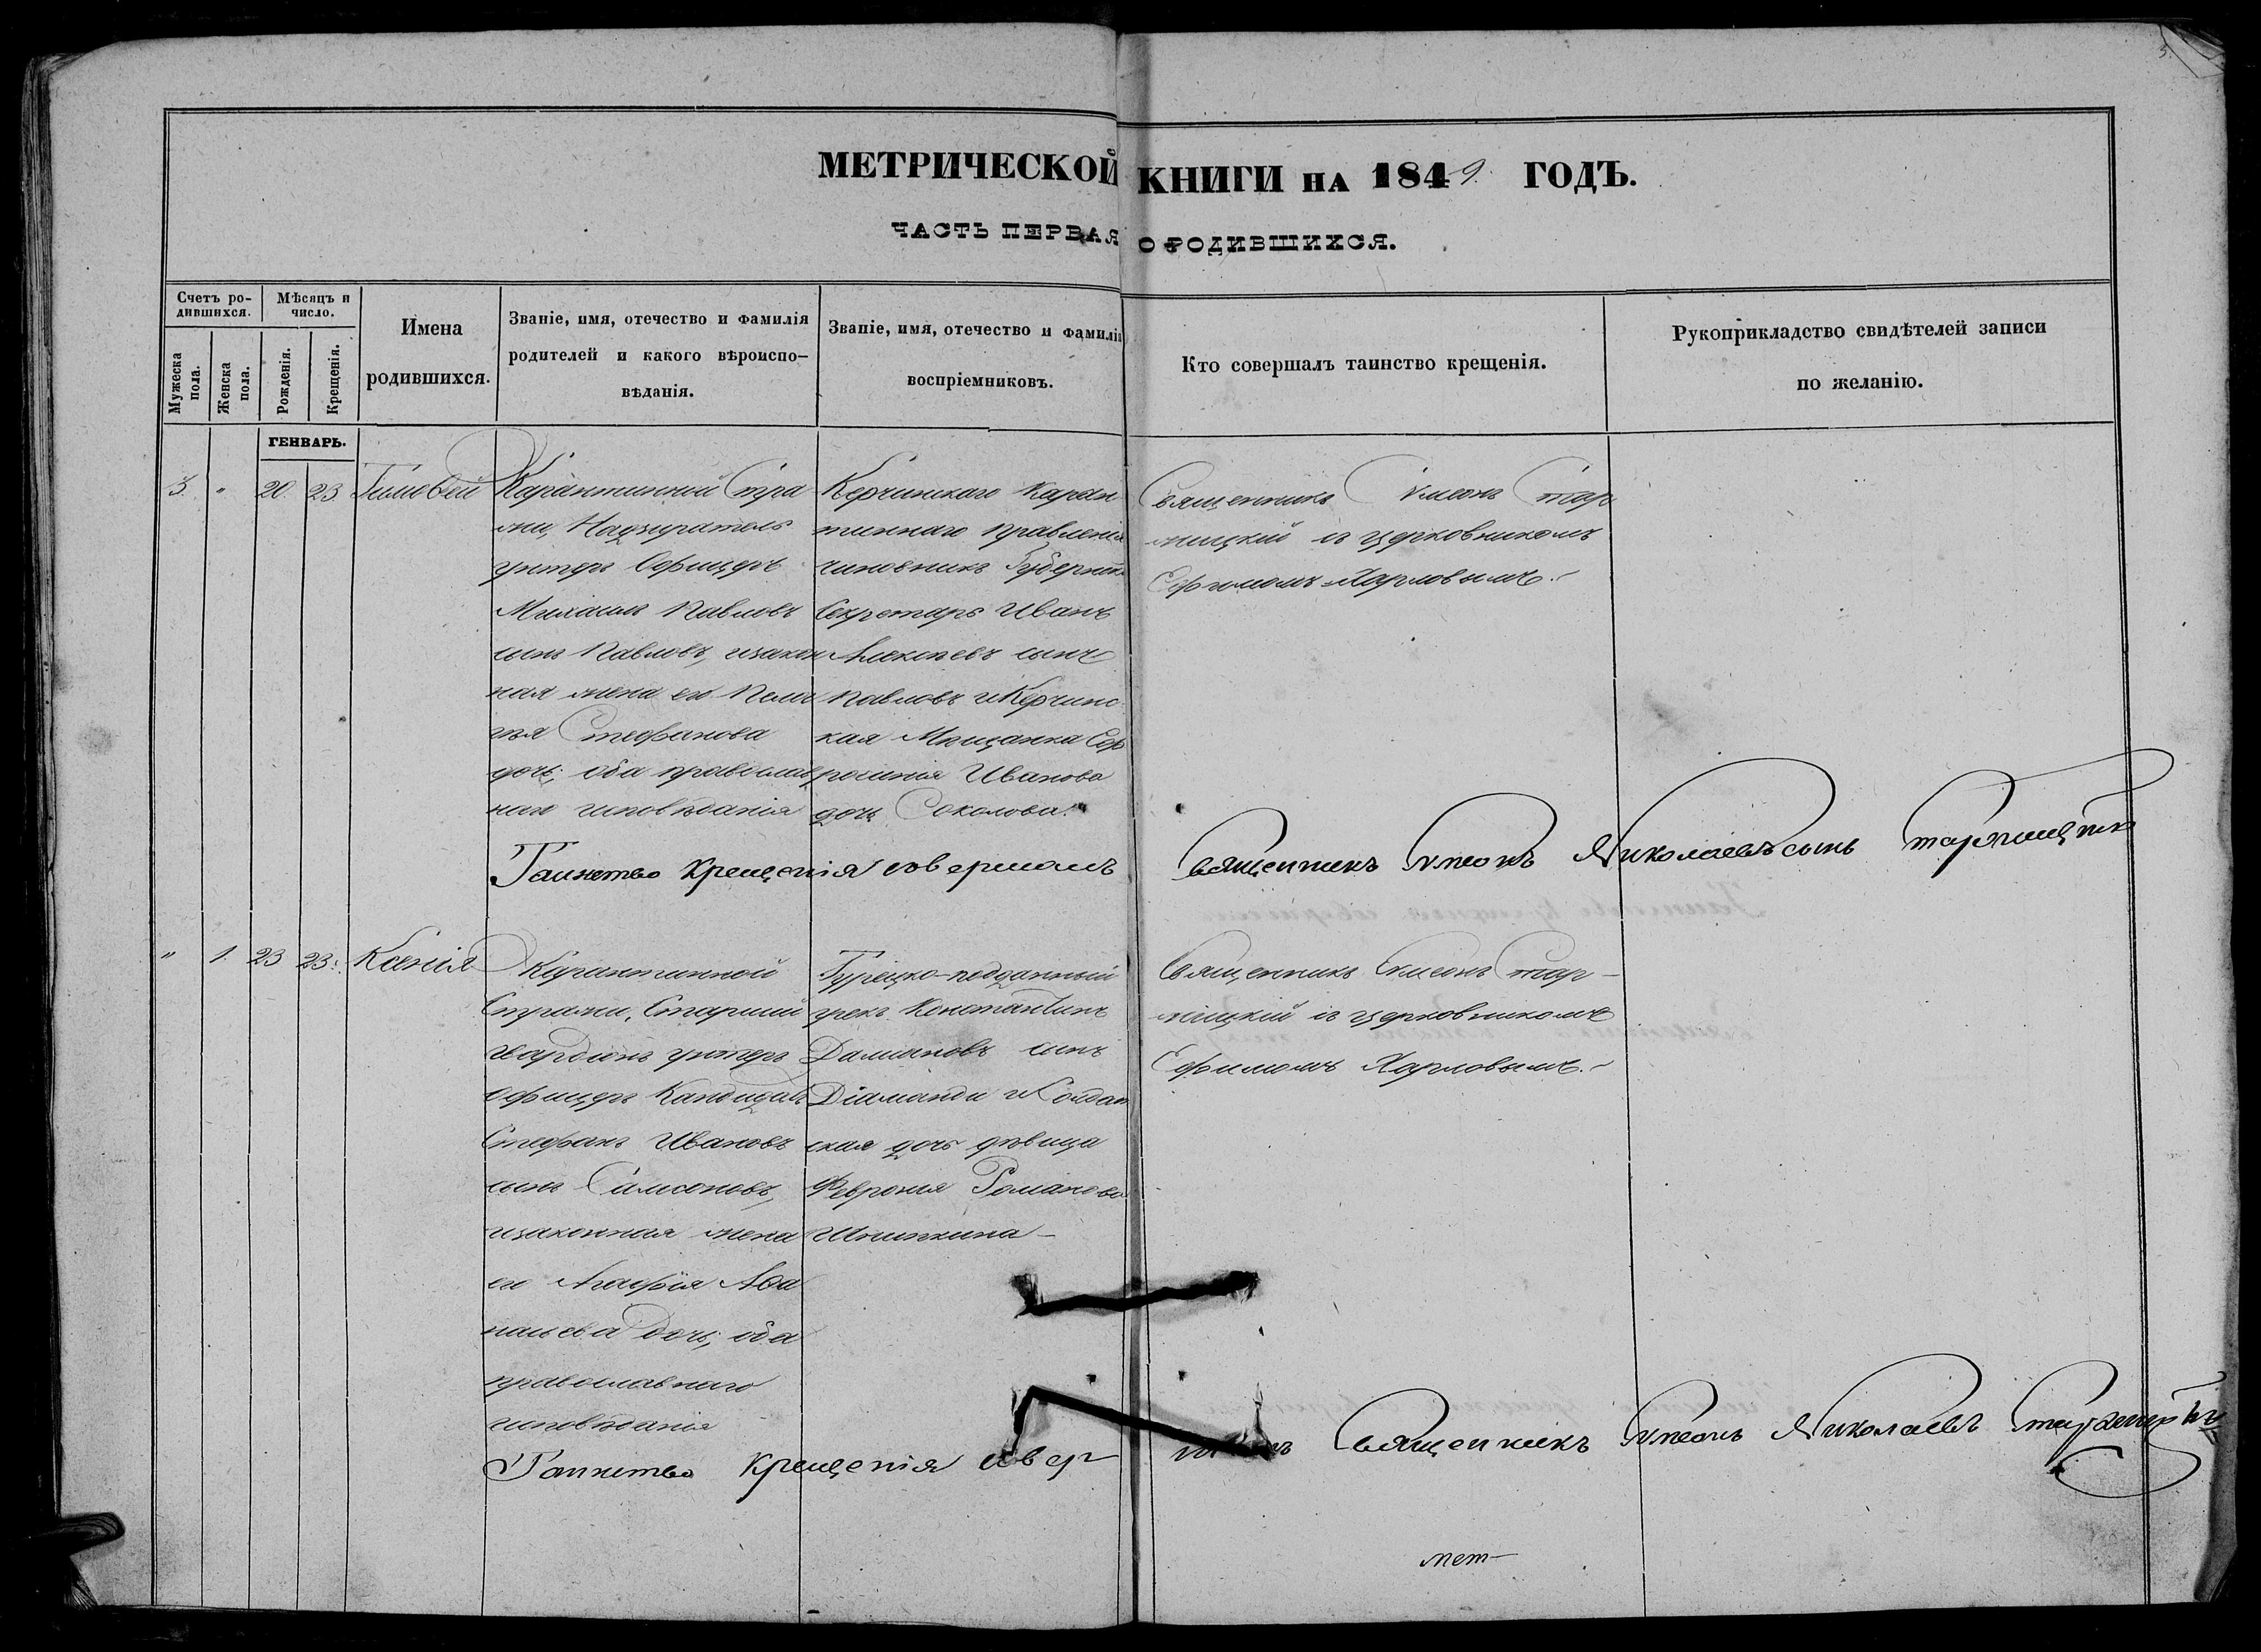 5
МЕТРИЧЕСКОЙ КНИГИ НА 1849. ГОДЪ.
ЧАСТЬ ПЕРВАЯ О РОДИВШИХСЯ.
Счетъ ро-
дившихся.
Мужеска
пола.
Женска
пола.
Мѣсяцъ и
число.
Рожденія.
Крещенія.
Имена
родившихся.
Званіе, имя, отечество и фамилія
родителей и какого вѣроиспо-
вѣданія.
Званіе, имя, отечество и фамилія
воспріемниковъ.
Кто совершалъ таинство крещенія.
Рукоприкладство свидѣтелей записи
по желанію.
ГЕНВАРЬ.
3. " 20. 23 Тимофей
Карантинной Стра
жи, Надзиратель
унтеръ Офицеръ
Михаилъ Павловъ
сынъ Павловъ, изакон
ная жена его Пела
гѣя Стефанова
дочь; оба православ
наго исповѣданія
Керчинскаго Каран
тиннаго правленія
чиновникъ Губернскій
Секретарь Иванъ
Алексѣевъ сынъ
Павловъ и Керчинс
кая Мѣщанка Еф
росинія Иванова
дочь Соколова.
Священникъ Симеонъ Тар
ницкій съ церковникомъ
Ефимомъ Харловымъ.
Таинство Крещенія совершалъ Священникъ Симеонъ Николаевъ сынъ
" 1. 23 23. Ксенія
Карантинной
Стражи, Старшій
гвардіонъ унтеръ
офицеръ
Стефанъ Ивановъ
сынъ Самсоновъ,
изаконная жена
его Агафія Афа
насьева дочь; оба
православнаго
исповѣданія
Турецко-подданный
грекъ Константинъ
Даміановъ сынъ
Діаманди и Солдат
ская дочь дѣвица
Февронія Романова
Священникъ Симеонъ Тар-
ницкій съ церковникомъ
Ефимомъ Харловымъ.
Таинство Крещенія совер шалъ Священникъ Симеонъ Николаевъ
мет-